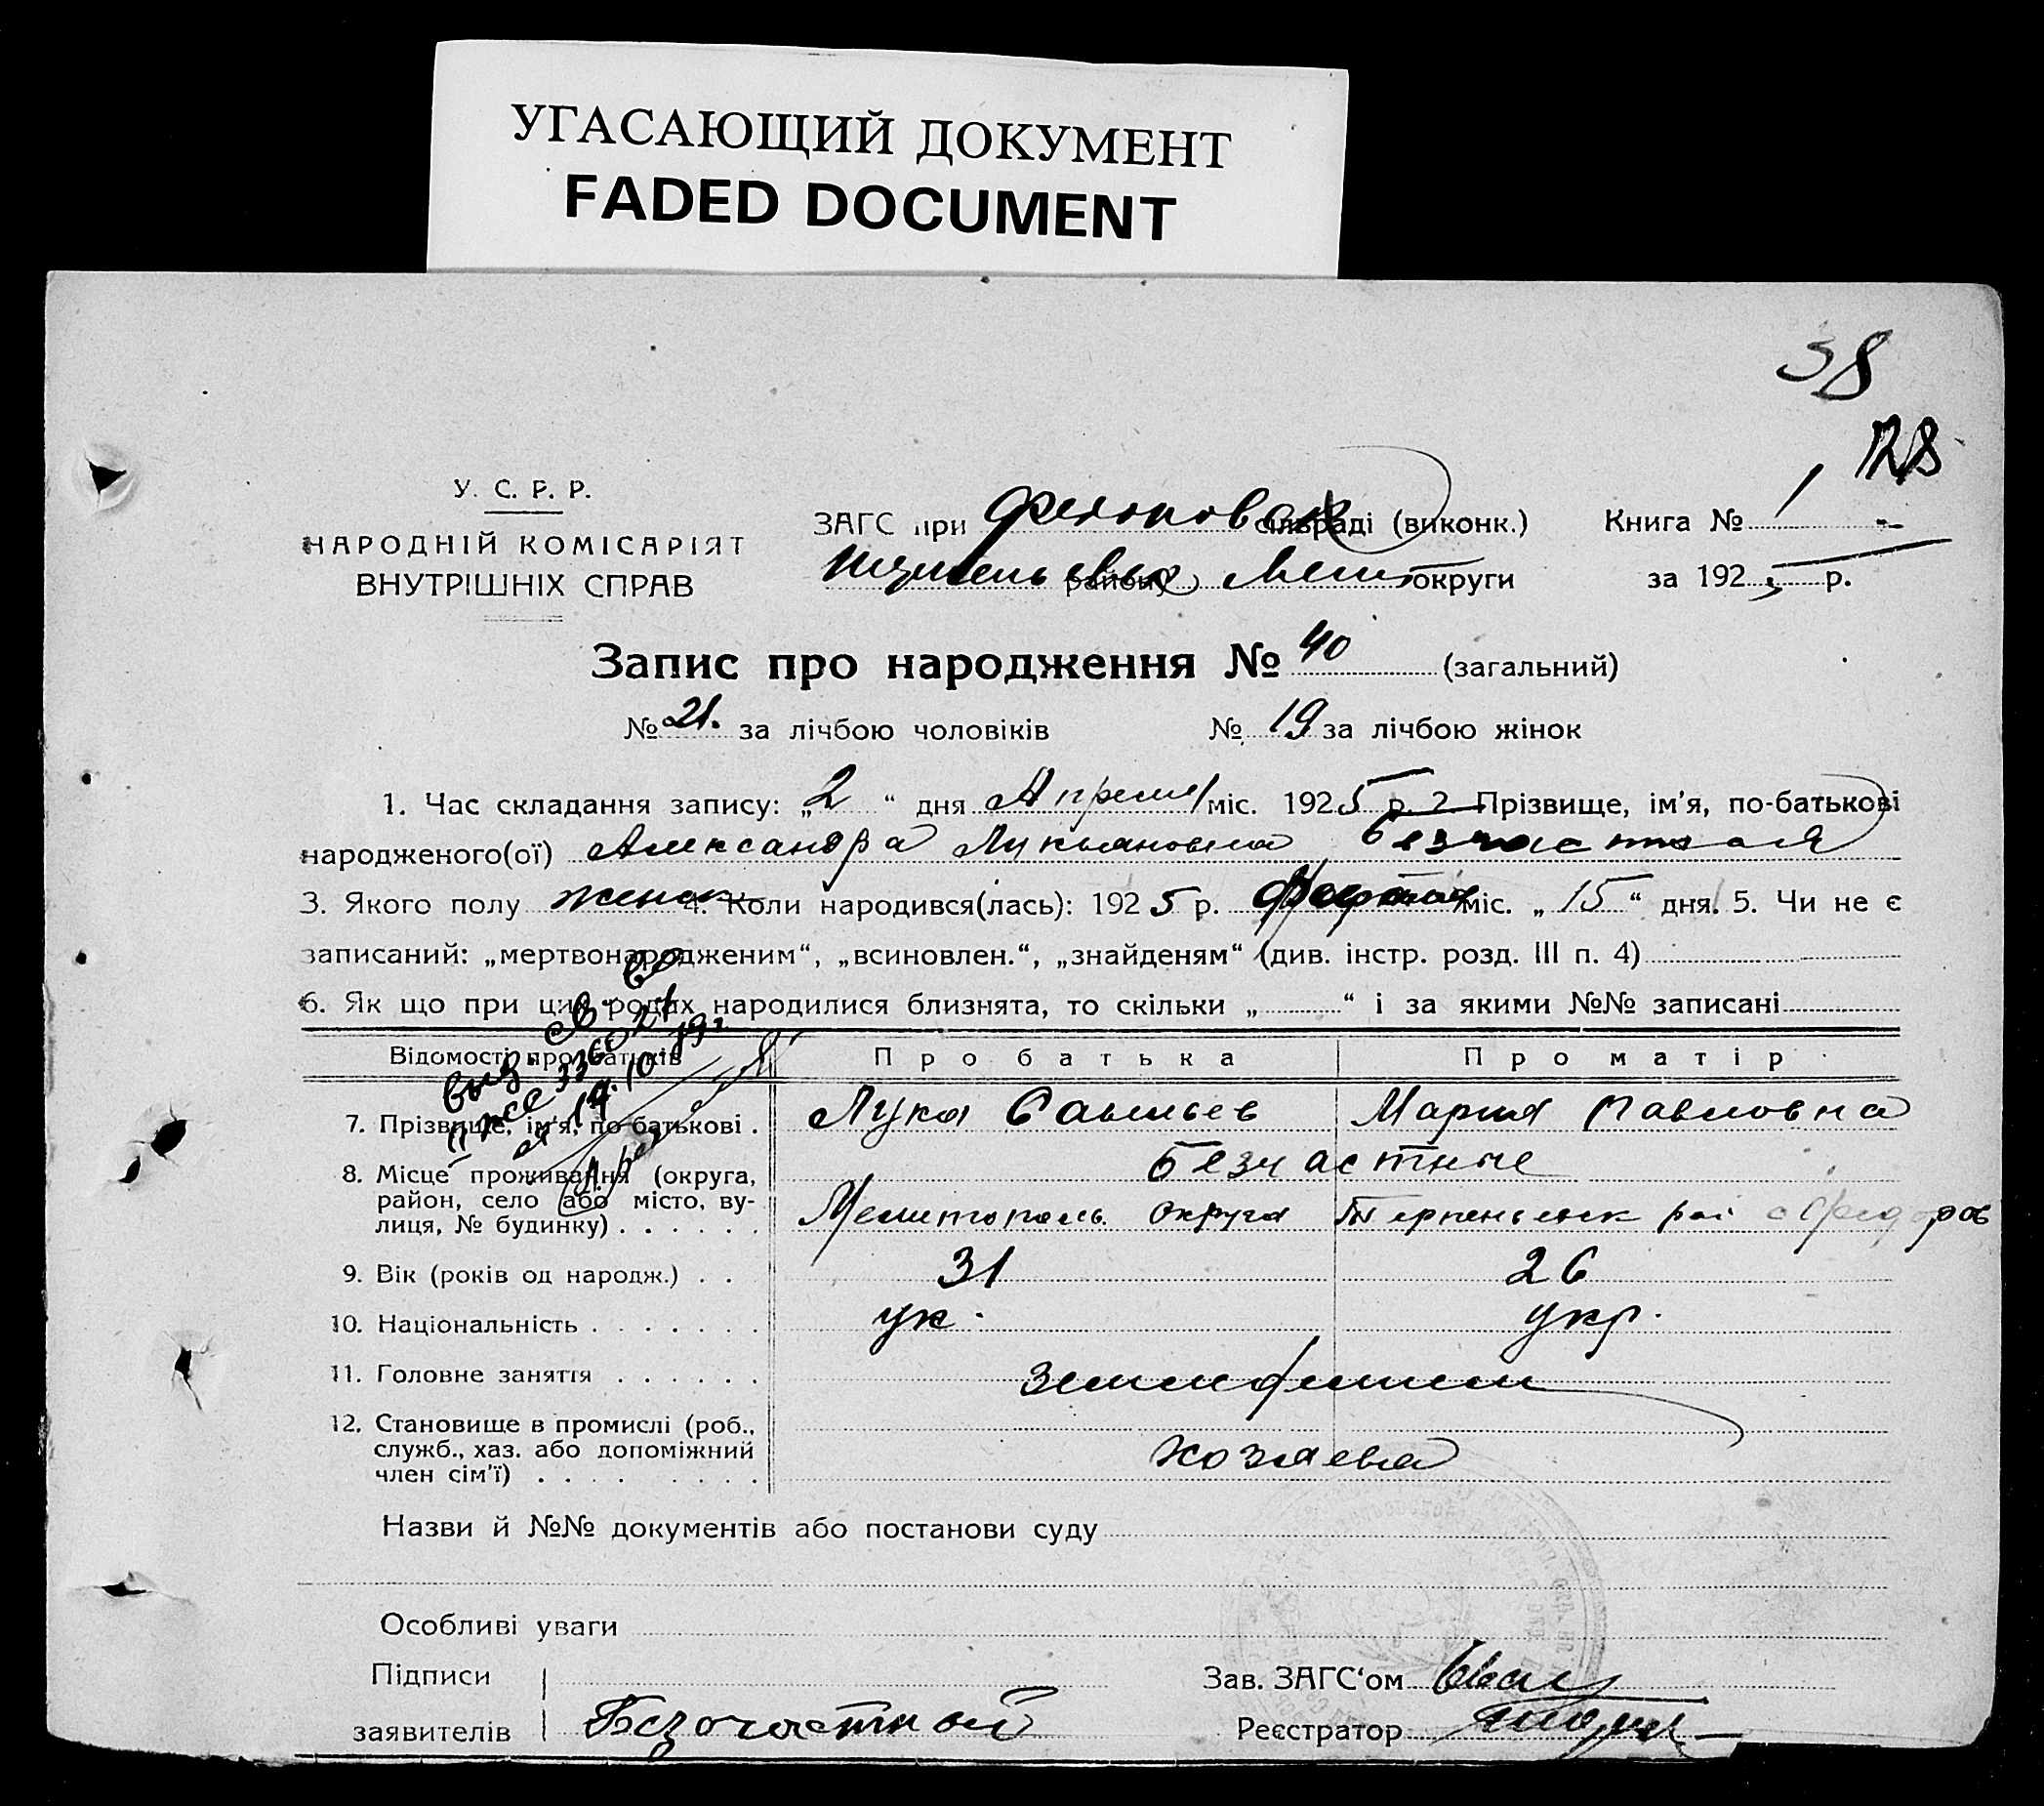 УГАСАЮЩИЙ ДОКУМЕНТ
FADED DOCUMENT
38
У. С. Р. Р.
НАРОДНІЙ КОМІСАРІЯТ
ВНУТРІШНІХ СПРАВ
ЗАГС при сільраді (виконк.) Книга № 1
району Мелит округи за 1925 р.
Запис про народження № 40 (загальний)
№ 21. за лічбою чоловіків № 19 за лічбою жінок
1. Час складання запису: „2“ дня Апреля міс. 1925 р. 2. Прізвище, ім'я, по-батькові
народженого(ої) Александра Лукьяновна Безчастная
3. Якого полу женск 4. Коли народився(лась): 1925 р. міс. „15“ дня. 5. Чи не є
записаний: „мертвонародженим“, „всиновлен.“, „знайденям“ (див. інстр. розд. III п. 4)
6. Як що при цих родах народилися близнята, то скільки „ “ і за якими №№ записані
Відомості про батьків Про батька Про матір
7. Прізвище, ім'я, по-батькові . Лука Савельев Мария Павловна
Безчастные
8. Місце проживання (округа,
район, село або місто, ву-
лиця, № будинку) . . . . . . Мелитополь округа Терпеньевск рай с Федоров
9. Вік (років од народж.) . . 31 26
10. Національність . . . . . . . ук. укр.
11. Головне заняття . . . . . .
12. Становище в промислі (роб.,
служб., хаз. або допоміжний
член сім'ї) . . . . . . . . Хозяева
Назви й №№ документів або постанови суду
Особливі уваги
Підписи Зав. ЗАГС'ом
заявителів Безчастный Реєстратор